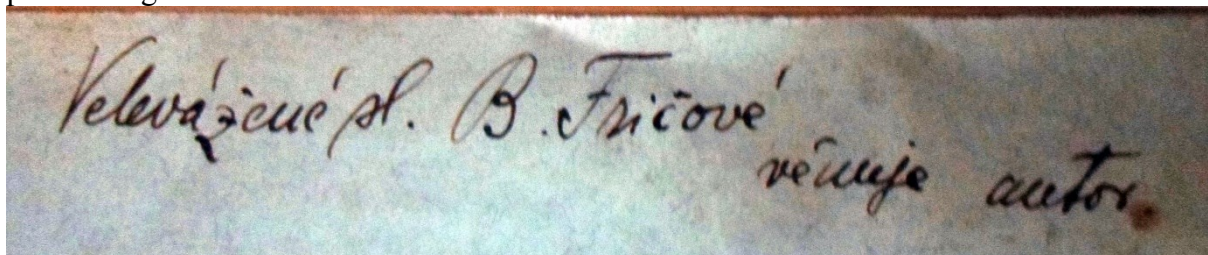 Velevážené sl. B. Fričové
věnuje autor.